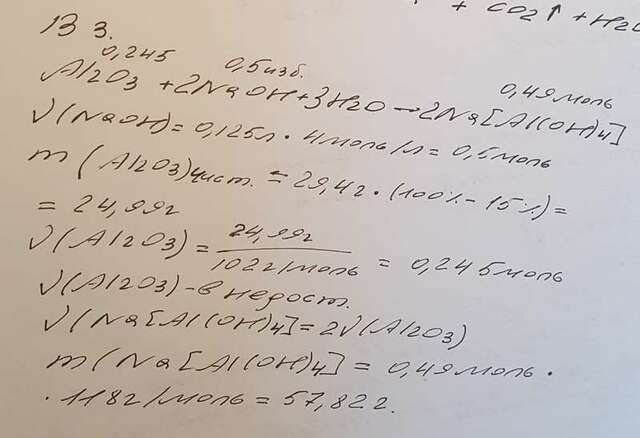 + CO2↑ + H2O
13 3.
0,245 0,5 изб. 0,49 моль
Al2O3 + 2NaOH + 3H2O → 2Na[Al(OH)4]
ν(NaOH) = 0,125л · 4моль/л = 0,5моль
m(Al2O3)чист. = 29,4г · (100% - 15%) =
= 24,99г
ν(Al2O3) = 24,99г / 102г/моль = 0,245моль
ν(Al2O3) - в недост.
ν(Na[Al(OH)4] = 2ν(Al2O3)
m(Na[Al(OH)4] = 0,49моль ·
· 118г/моль = 57,82г.